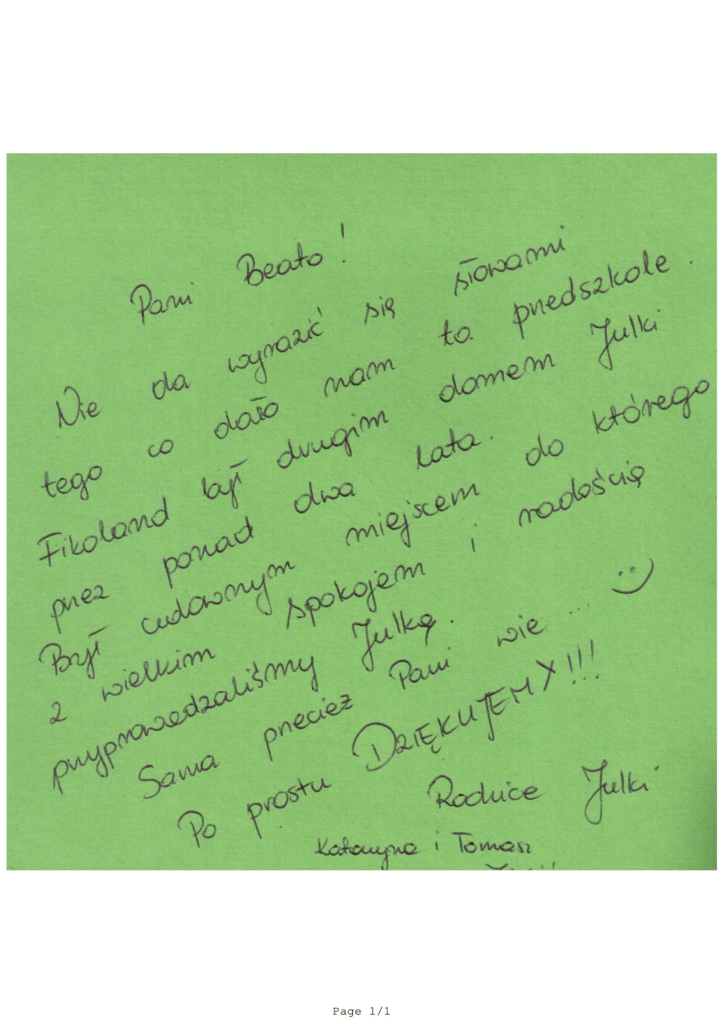 Pani Beato!
Nie da wyrazić się słowami
tego co dało nam to przedszkole.
Fikoland był drugim domem Julki
przez ponad dwa lata.
Był cudownym miejscem do którego
z wielkim spokojem i radością
przyprowadzaliśmy Julkę.
Sama przecież Pani wie... :)
Po prostu DZIĘKUJEMY!!!
Rodzice Julki
Katarzyna i Tomasz
Page 1/1